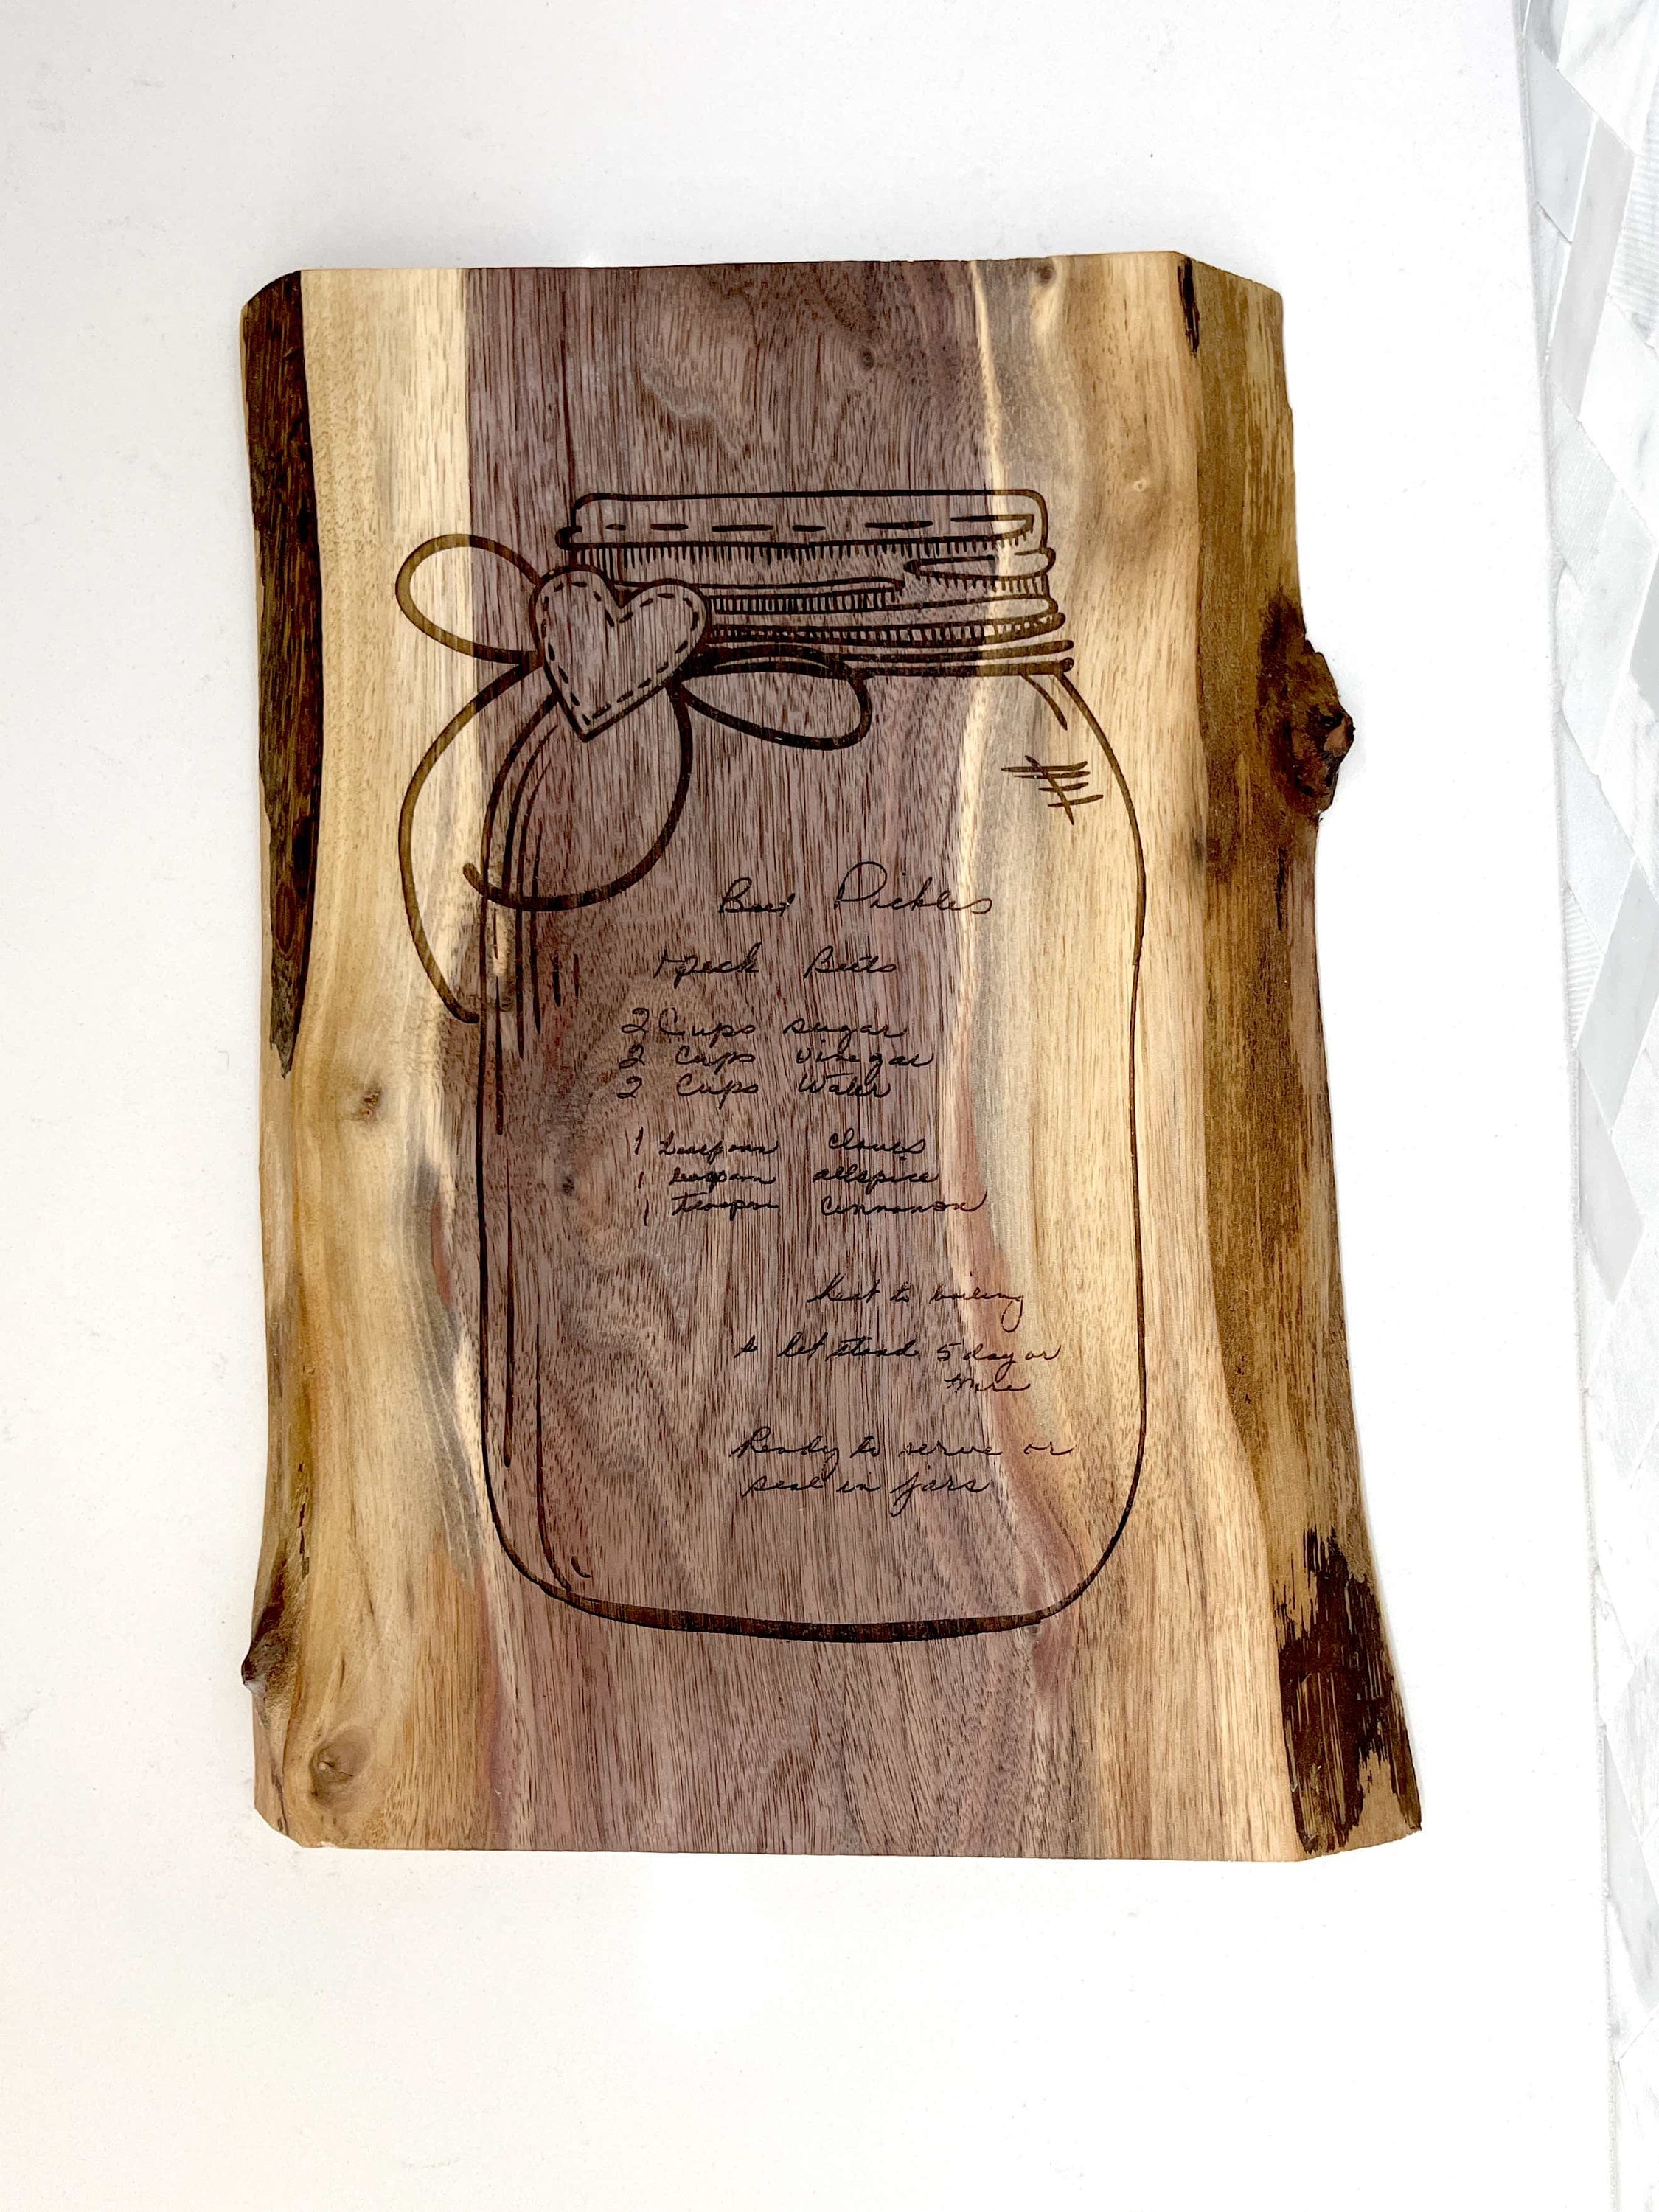 Beet Pickles
1 peck Beets
2 Cups sugar
2 Cups vinegar
2 Cups Water
1 teaspoon cloves
1 teaspoon allspice
1 teaspoon Cinnamon
Heat to boiling
& let stand 5 day or
more
Ready to serve or
seal in jars